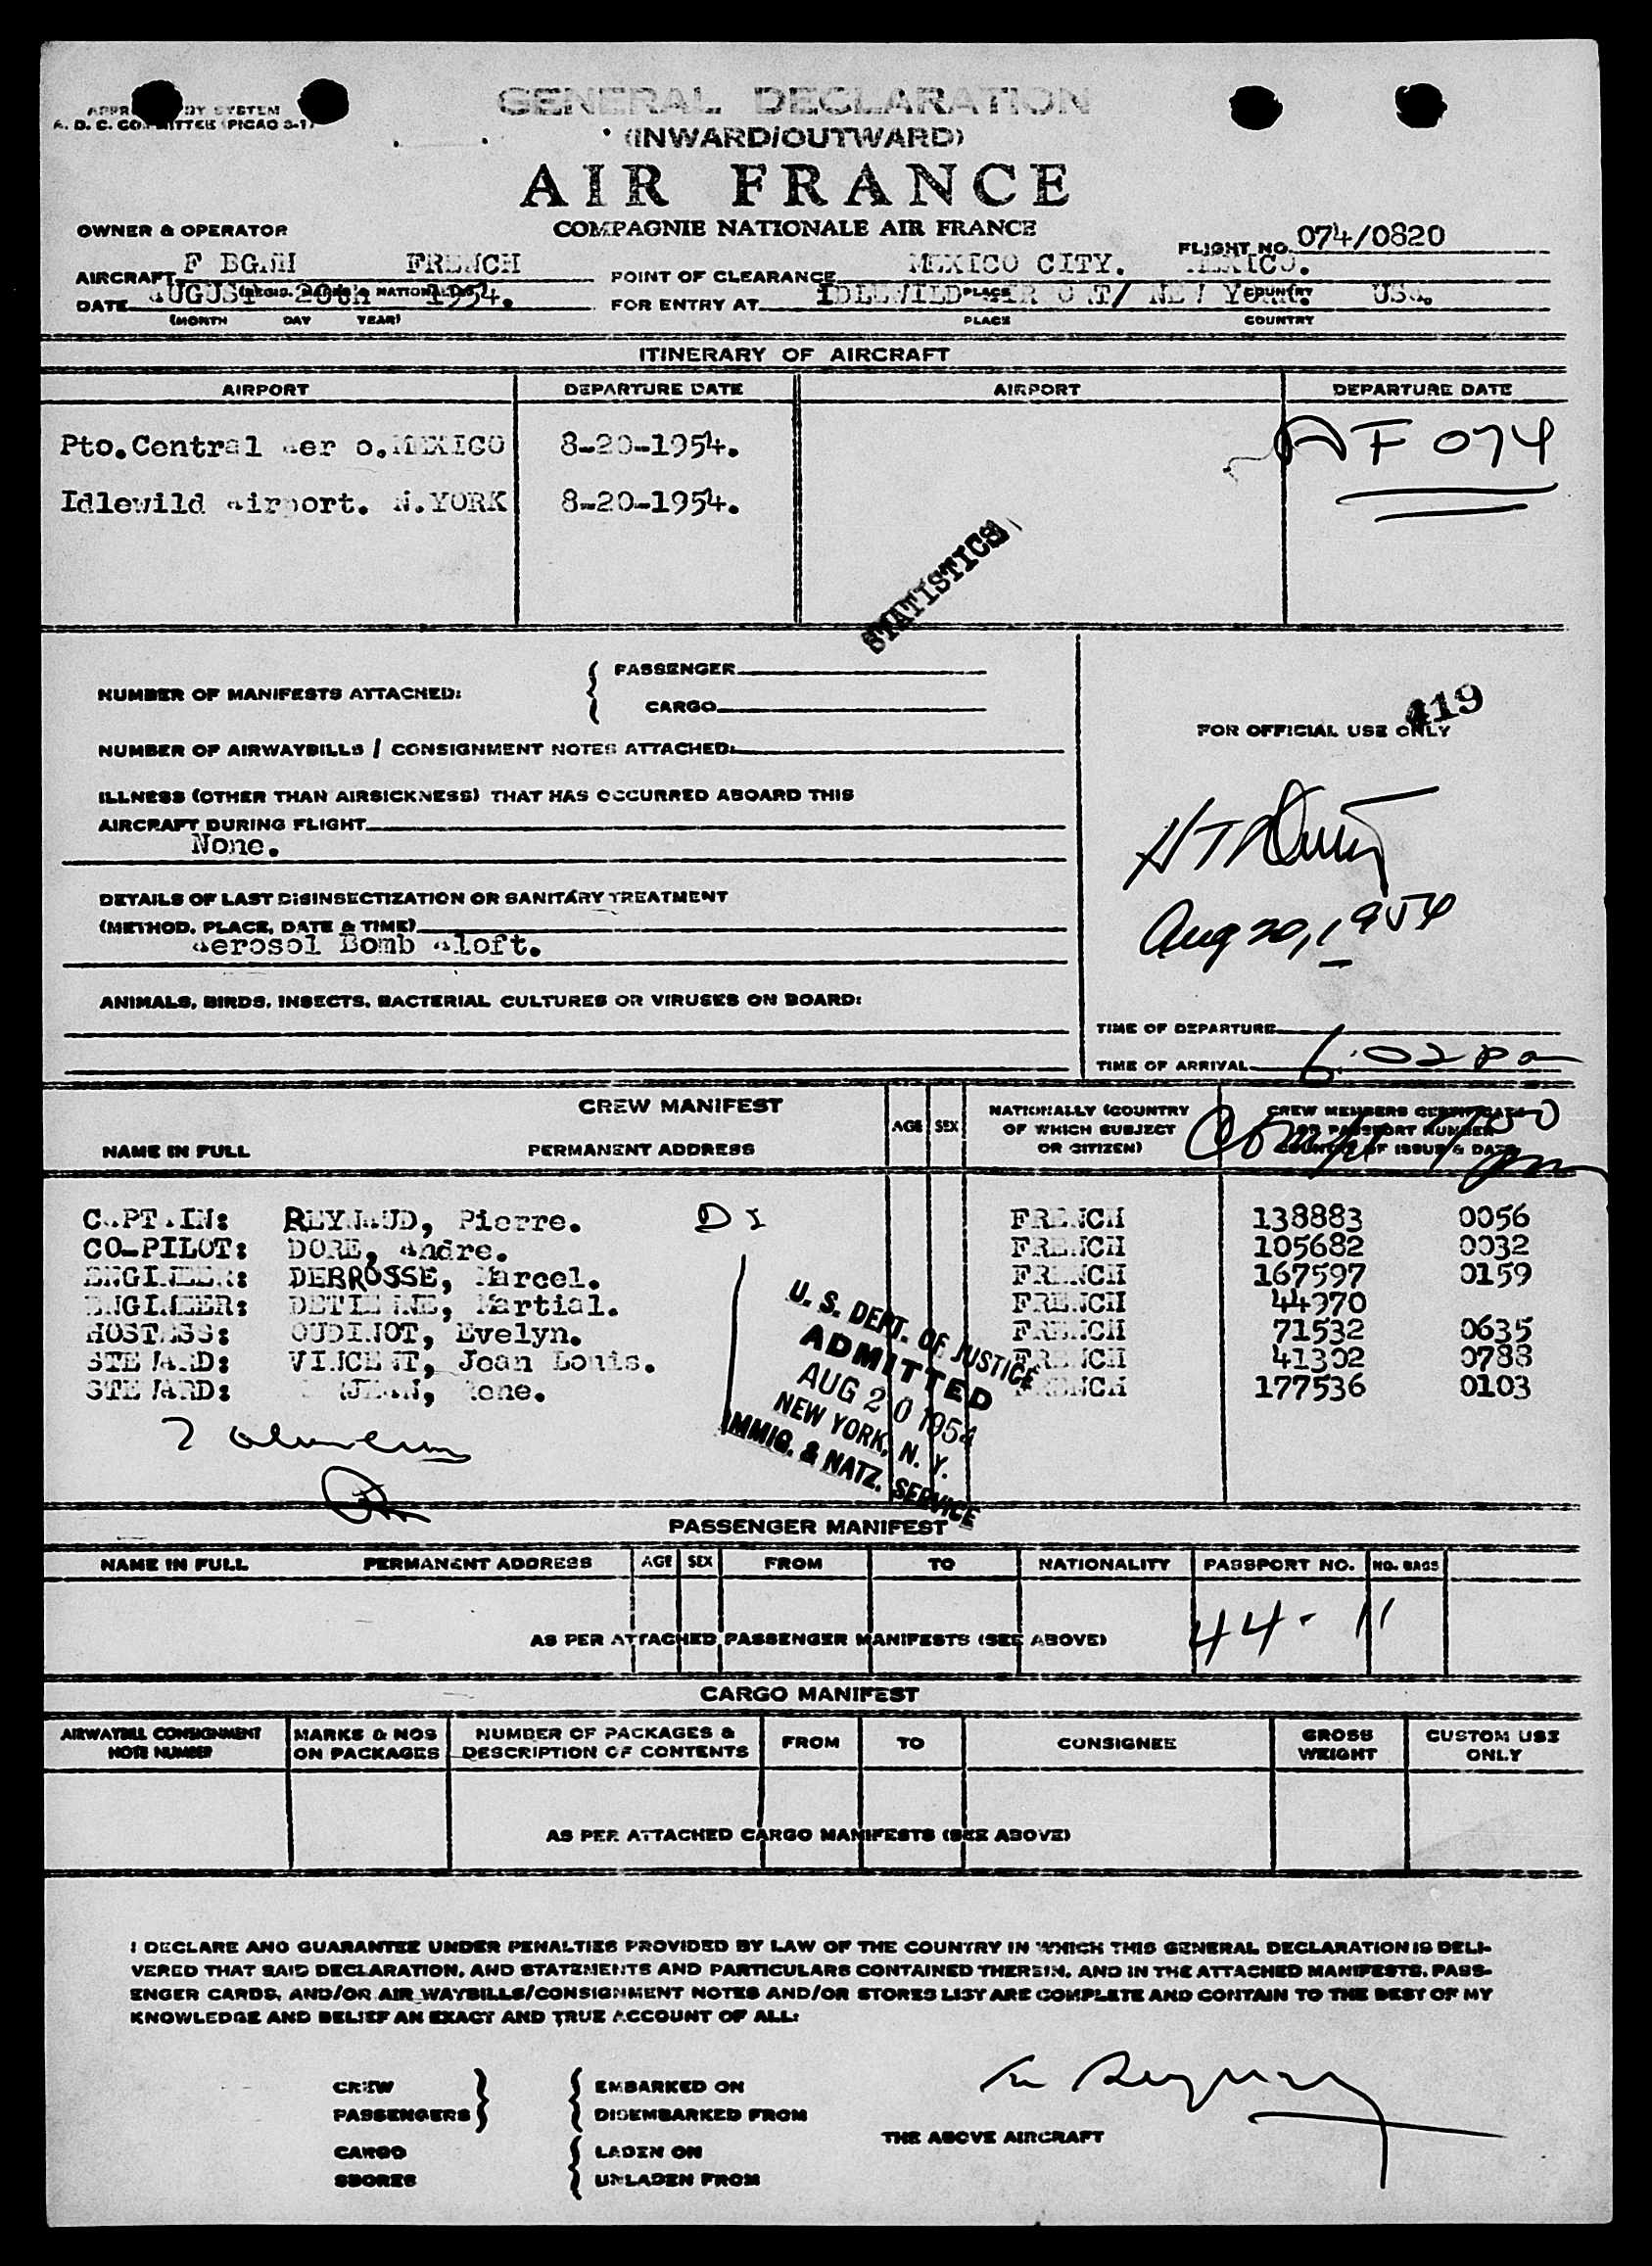 GENERAL DECLARATION
BY SYSTEM
A. D. C. COMMITTEE (PICAO 3-1)
(INWARD/OUTWARD)
AIR FRANCE
OWNER & OPERATOR
COMPAGNIE NATIONALE AIR FRANCE
FLIGHT NO. 074/0820
AIRCRAFT F FRENCH
POINT OF CLEARANCE MEXICO CITY. MEXICO.
DATE AUGUST 20th 1954.
FOR ENTRY AT IDLEWILD AIRPORT/ NEW YORK. USA.
(MONTH DAY YEAR)
PLACE COUNTRY
ITINERARY OF AIRCRAFT
AIRPORT DEPARTURE DATE AIRPORT DEPARTURE DATE
Pto.Central Aer o.MEXICO 8-20-1954. AF 074
Idlewild Airport. N.YORK 8-20-1954.
STATISTICS
NUMBER OF MANIFESTS ATTACHED: { PASSENGER
CARGO
419
FOR OFFICIAL USE ONLY
NUMBER OF AIRWAYBILLS / CONSIGNMENT NOTES ATTACHED:
ILLNESS (OTHER THAN AIRSICKNESS) THAT HAS OCCURRED ABOARD THIS
AIRCRAFT DURING FLIGHT
None.
DETAILS OF LAST DISINSECTIZATION OR SANITARY TREATMENT
(METHOD, PLACE, DATE & TIME)
Aerosol Bomb Aloft.
Aug 20, 1954
ANIMALS, BIRDS, INSECTS, BACTERIAL CULTURES OR VIRUSES ON BOARD:
TIME OF DEPARTURE
TIME OF ARRIVAL 6:02 pm
CREW MANIFEST
NAME IN FULL PERMANENT ADDRESS AGE SEX
NATIONALLY (COUNTRY
OF WHICH SUBJECT
OR CITIZEN)
CREW MEMBERS CERTIFICATE
OR PASSPORT NUMBER
COUNTRY OF ISSUE & DATE
CAPTAIN: REYNAUD, Pierre. FRENCH 138883 0056
CO-PILOT: DORE, Andre. FRENCH 105682 0032
ENGINEER: DERROSSE, Marcel. FRENCH 167597 0159
ENGINEER: DETIENNE, Martial. FRENCH 44970
HOSTESS: OUDINOT, Evelyn. FRENCH 71532 0635
STEWARD: VINCENT, Jean Louis. FRENCH 41302 0788
STEWARD: Rene. FRENCH 177536 0103
U. S. DEPT. OF JUSTICE
ADMITTED
AUG 20 1954
NEW YORK, N. Y.
IMMIG. & NATZ. SERVICE
PASSENGER MANIFEST
NAME IN FULL PERMANENT ADDRESS AGE SEX FROM TO NATIONALITY PASSPORT NO. NO. BAGS
AS PER ATTACHED PASSENGER MANIFESTS (SEE ABOVE) 44 - 11
CARGO MANIFEST
AIRWAYBILL CONSIGNMENT
NOTE NUMBER
MARKS & NOS
ON PACKAGES
NUMBER OF PACKAGES &
DESCRIPTION OF CONTENTS
FROM TO CONSIGNEE
GROSS
WEIGHT
CUSTOM USE
ONLY
AS PER ATTACHED CARGO MANIFESTS (SEE ABOVE)
I DECLARE AND GUARANTEE UNDER PENALTIES PROVIDED BY LAW OF THE COUNTRY IN WHICH THIS GENERAL DECLARATION IS DELI-
VERED THAT SAID DECLARATION, AND STATEMENTS AND PARTICULARS CONTAINED THEREIN, AND IN THE ATTACHED MANIFESTS, PASS-
ENGER CARDS, AND/OR AIR WAYBILLS/CONSIGNMENT NOTES AND/OR STORES LIST ARE COMPLETE AND CONTAIN TO THE BEST OF MY
KNOWLEDGE AND BELIEF AN EXACT AND TRUE ACCOUNT OF ALL:
CREW } { EMBARKED ON
PASSENGERS DISEMBARKED FROM
THE ABOVE AIRCRAFT
CARGO { LADEN ON
SHORES UNLADEN FROM